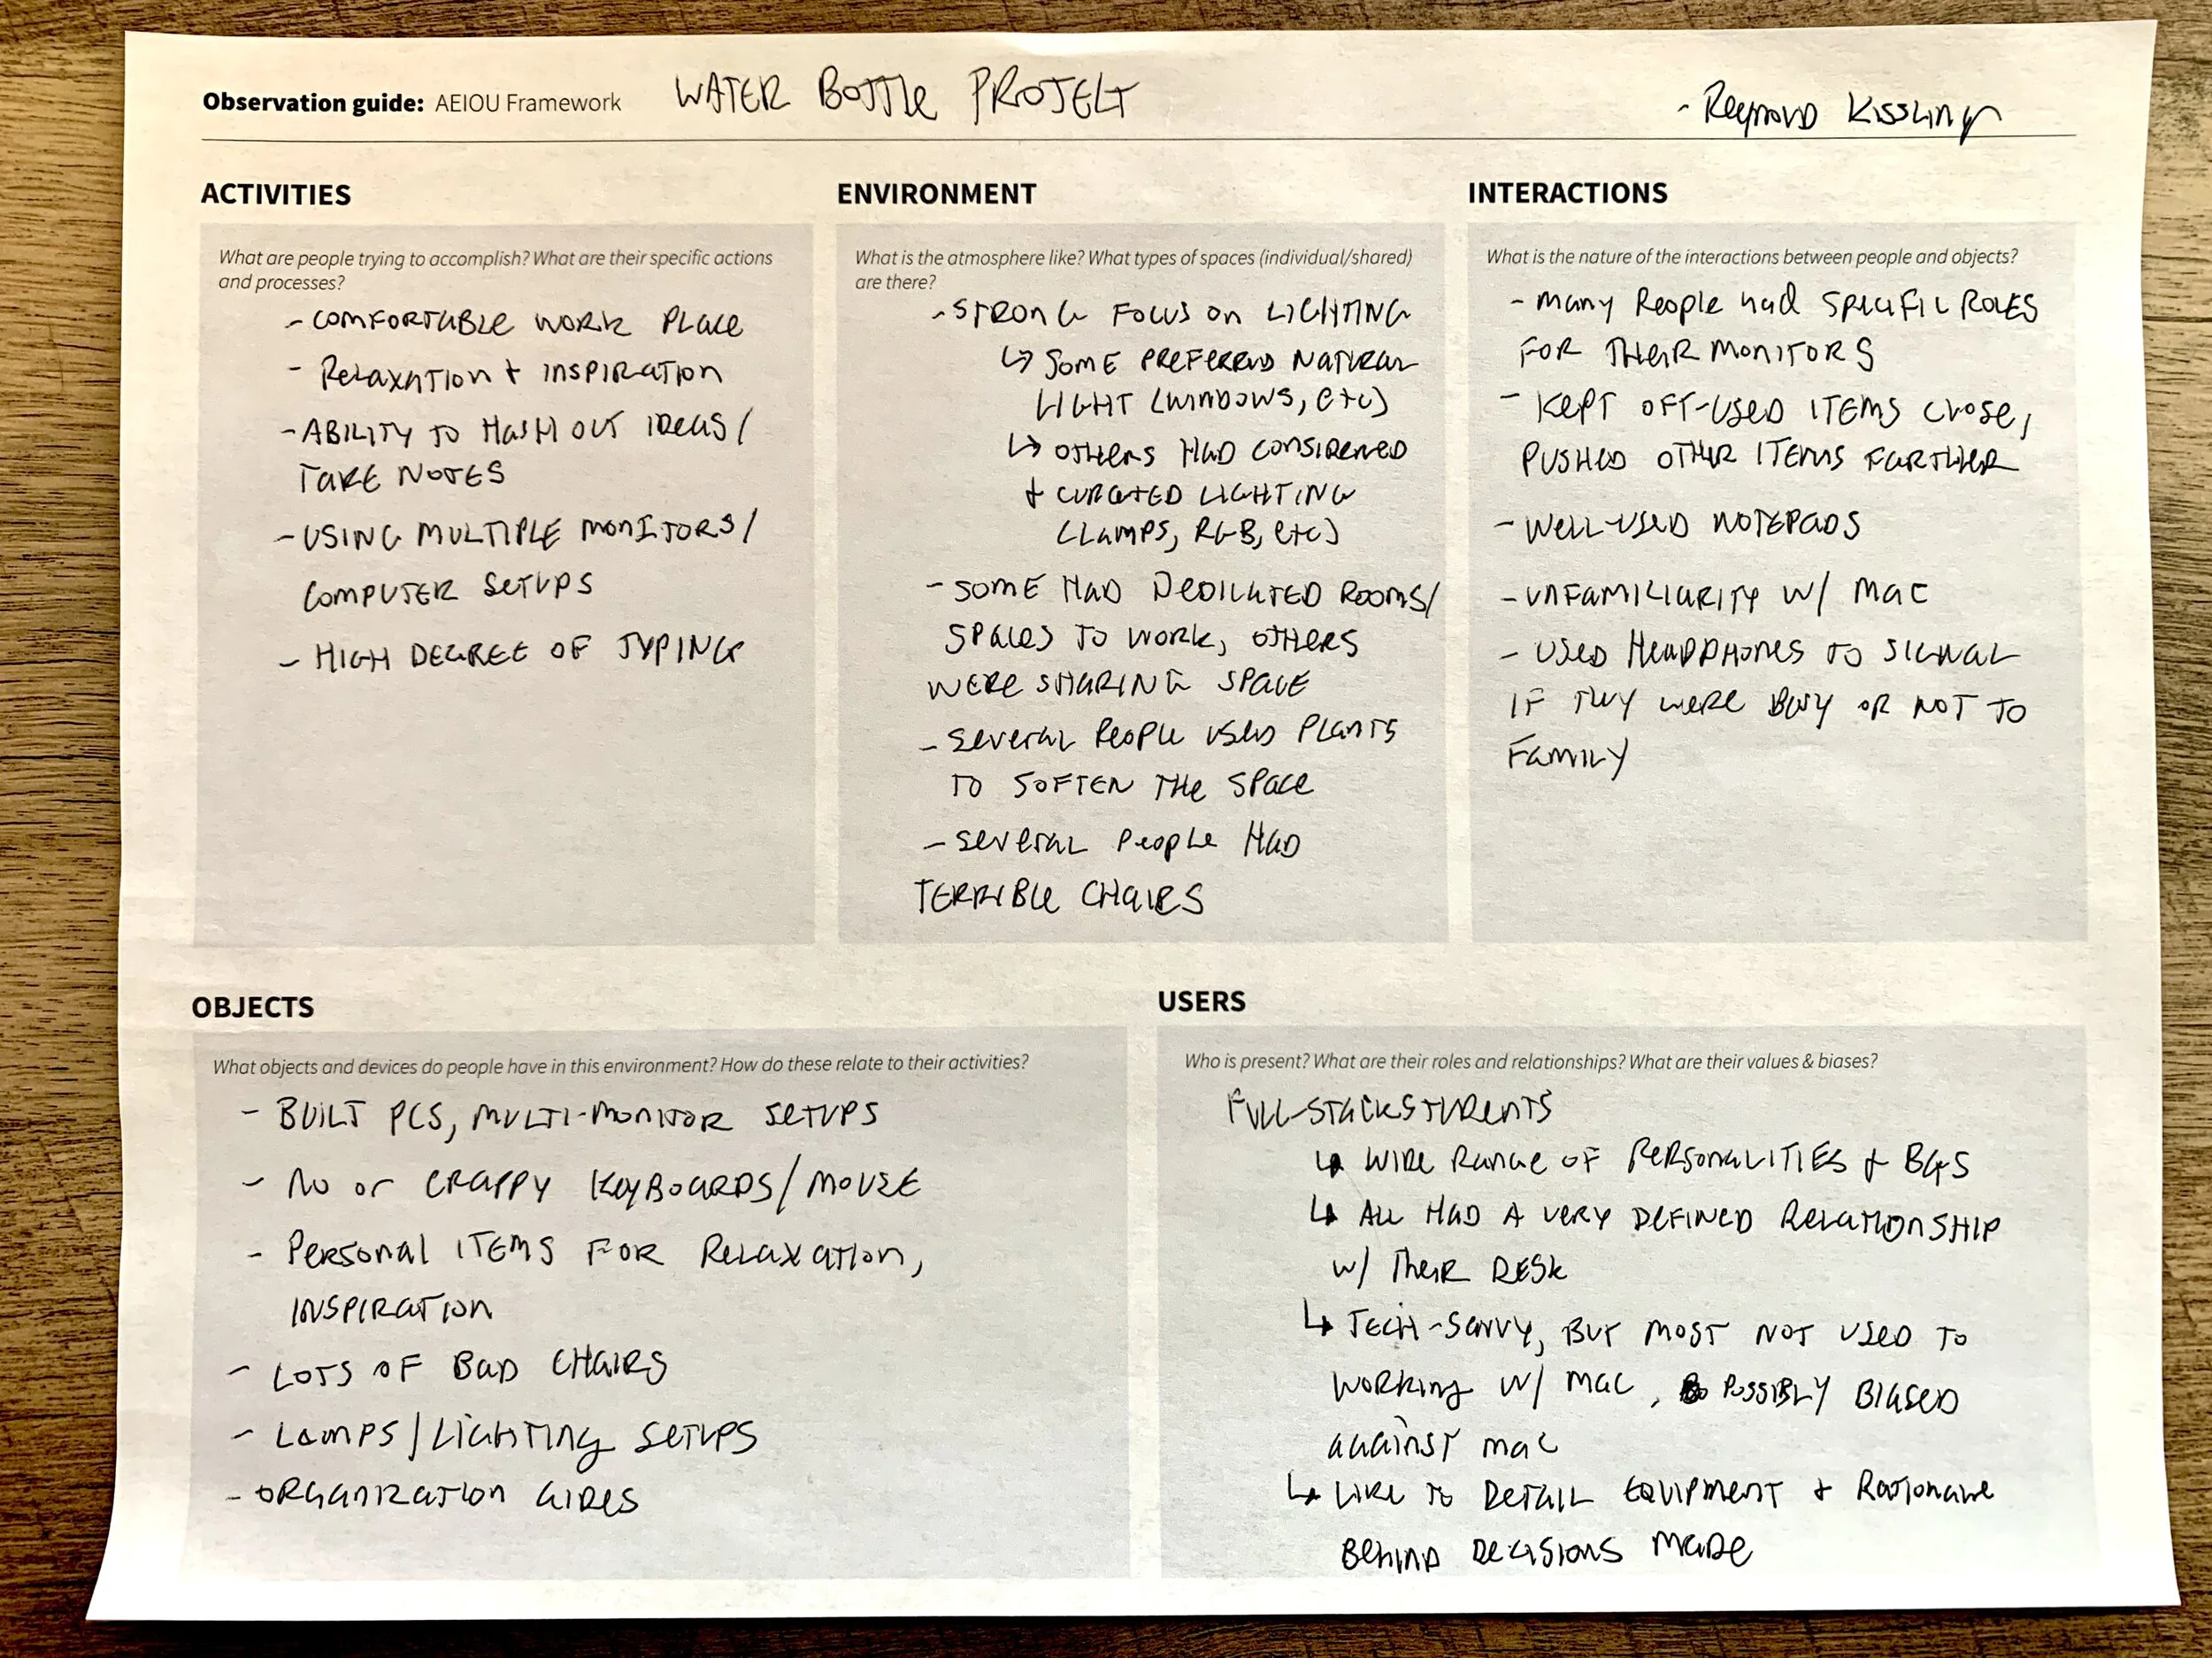 Observation guide: AEIOU Framework WATER BOTTLE PROJECT
- Raymond Kissling
ACTIVITIES
What are people trying to accomplish? What are their specific actions
and processes?
- COMFORTABLE WORK PLACE
- RELAXATION + INSPIRATION
- ABILITY TO HASH OUT IDEAS/
TAKE NOTES
- USING MULTIPLE MONITORS/
COMPUTER SETUPS
- HIGH DEGREE OF TYPING
ENVIRONMENT
What is the atmosphere like? What types of spaces (individual/shared)
are there?
- STRONG FOCUS ON LIGHTING
↳ SOME PREFERRED NATURAL
LIGHT (WINDOWS, ETC)
↳ OTHERS HAD CONSIDERED
+ CURATED LIGHTING
(LAMPS, RGB, ETC)
- SOME HAD DEDICATED ROOMS/
SPACES TO WORK, OTHERS
WERE SHARING SPACE
- SEVERAL PEOPLE USED PLANTS
TO SOFTEN THE SPACE
- SEVERAL PEOPLE HAD
TERRIBLE CHAIRS
INTERACTIONS
What is the nature of the interactions between people and objects?
- MANY PEOPLE HAD SPECIFIC ROLES
FOR THEIR MONITORS
- KEPT OFT-USED ITEMS CLOSE,
PUSHED OTHER ITEMS FARTHER
- WELL-USED NOTEPADS
- UNFAMILIARITY W/ MAC
- USED HEADPHONES TO SIGNAL
IF THEY WERE BUSY OR NOT TO
FAMILY
OBJECTS
What objects and devices do people have in this environment? How do these relate to their activities?
- BUILT PCS, MULTI-MONITOR SETUPS
- NO OR CRAPPY KEYBOARDS/MOUSE
- PERSONAL ITEMS FOR RELAXATION,
INSPIRATION
- LOTS OF BAD CHAIRS
- LAMPS/LIGHTING SETUPS
- ORGANIZATION AIDES
USERS
Who is present? What are their roles and relationships? What are their values & biases?
FULL-STACK STUDENTS
↳ WIDE RANGE OF PERSONALITIES + BGS
↳ ALL HAD A VERY DEFINED RELATIONSHIP
W/ THEIR DESK
↳ TECH-SAVVY, BUT MOST NOT USED TO
WORKING W/ MAC, POSSIBLY BIASED
AGAINST MAC
↳ LIKE TO DETAIL EQUIPMENT + RATIONALE
BEHIND DECISIONS MADE